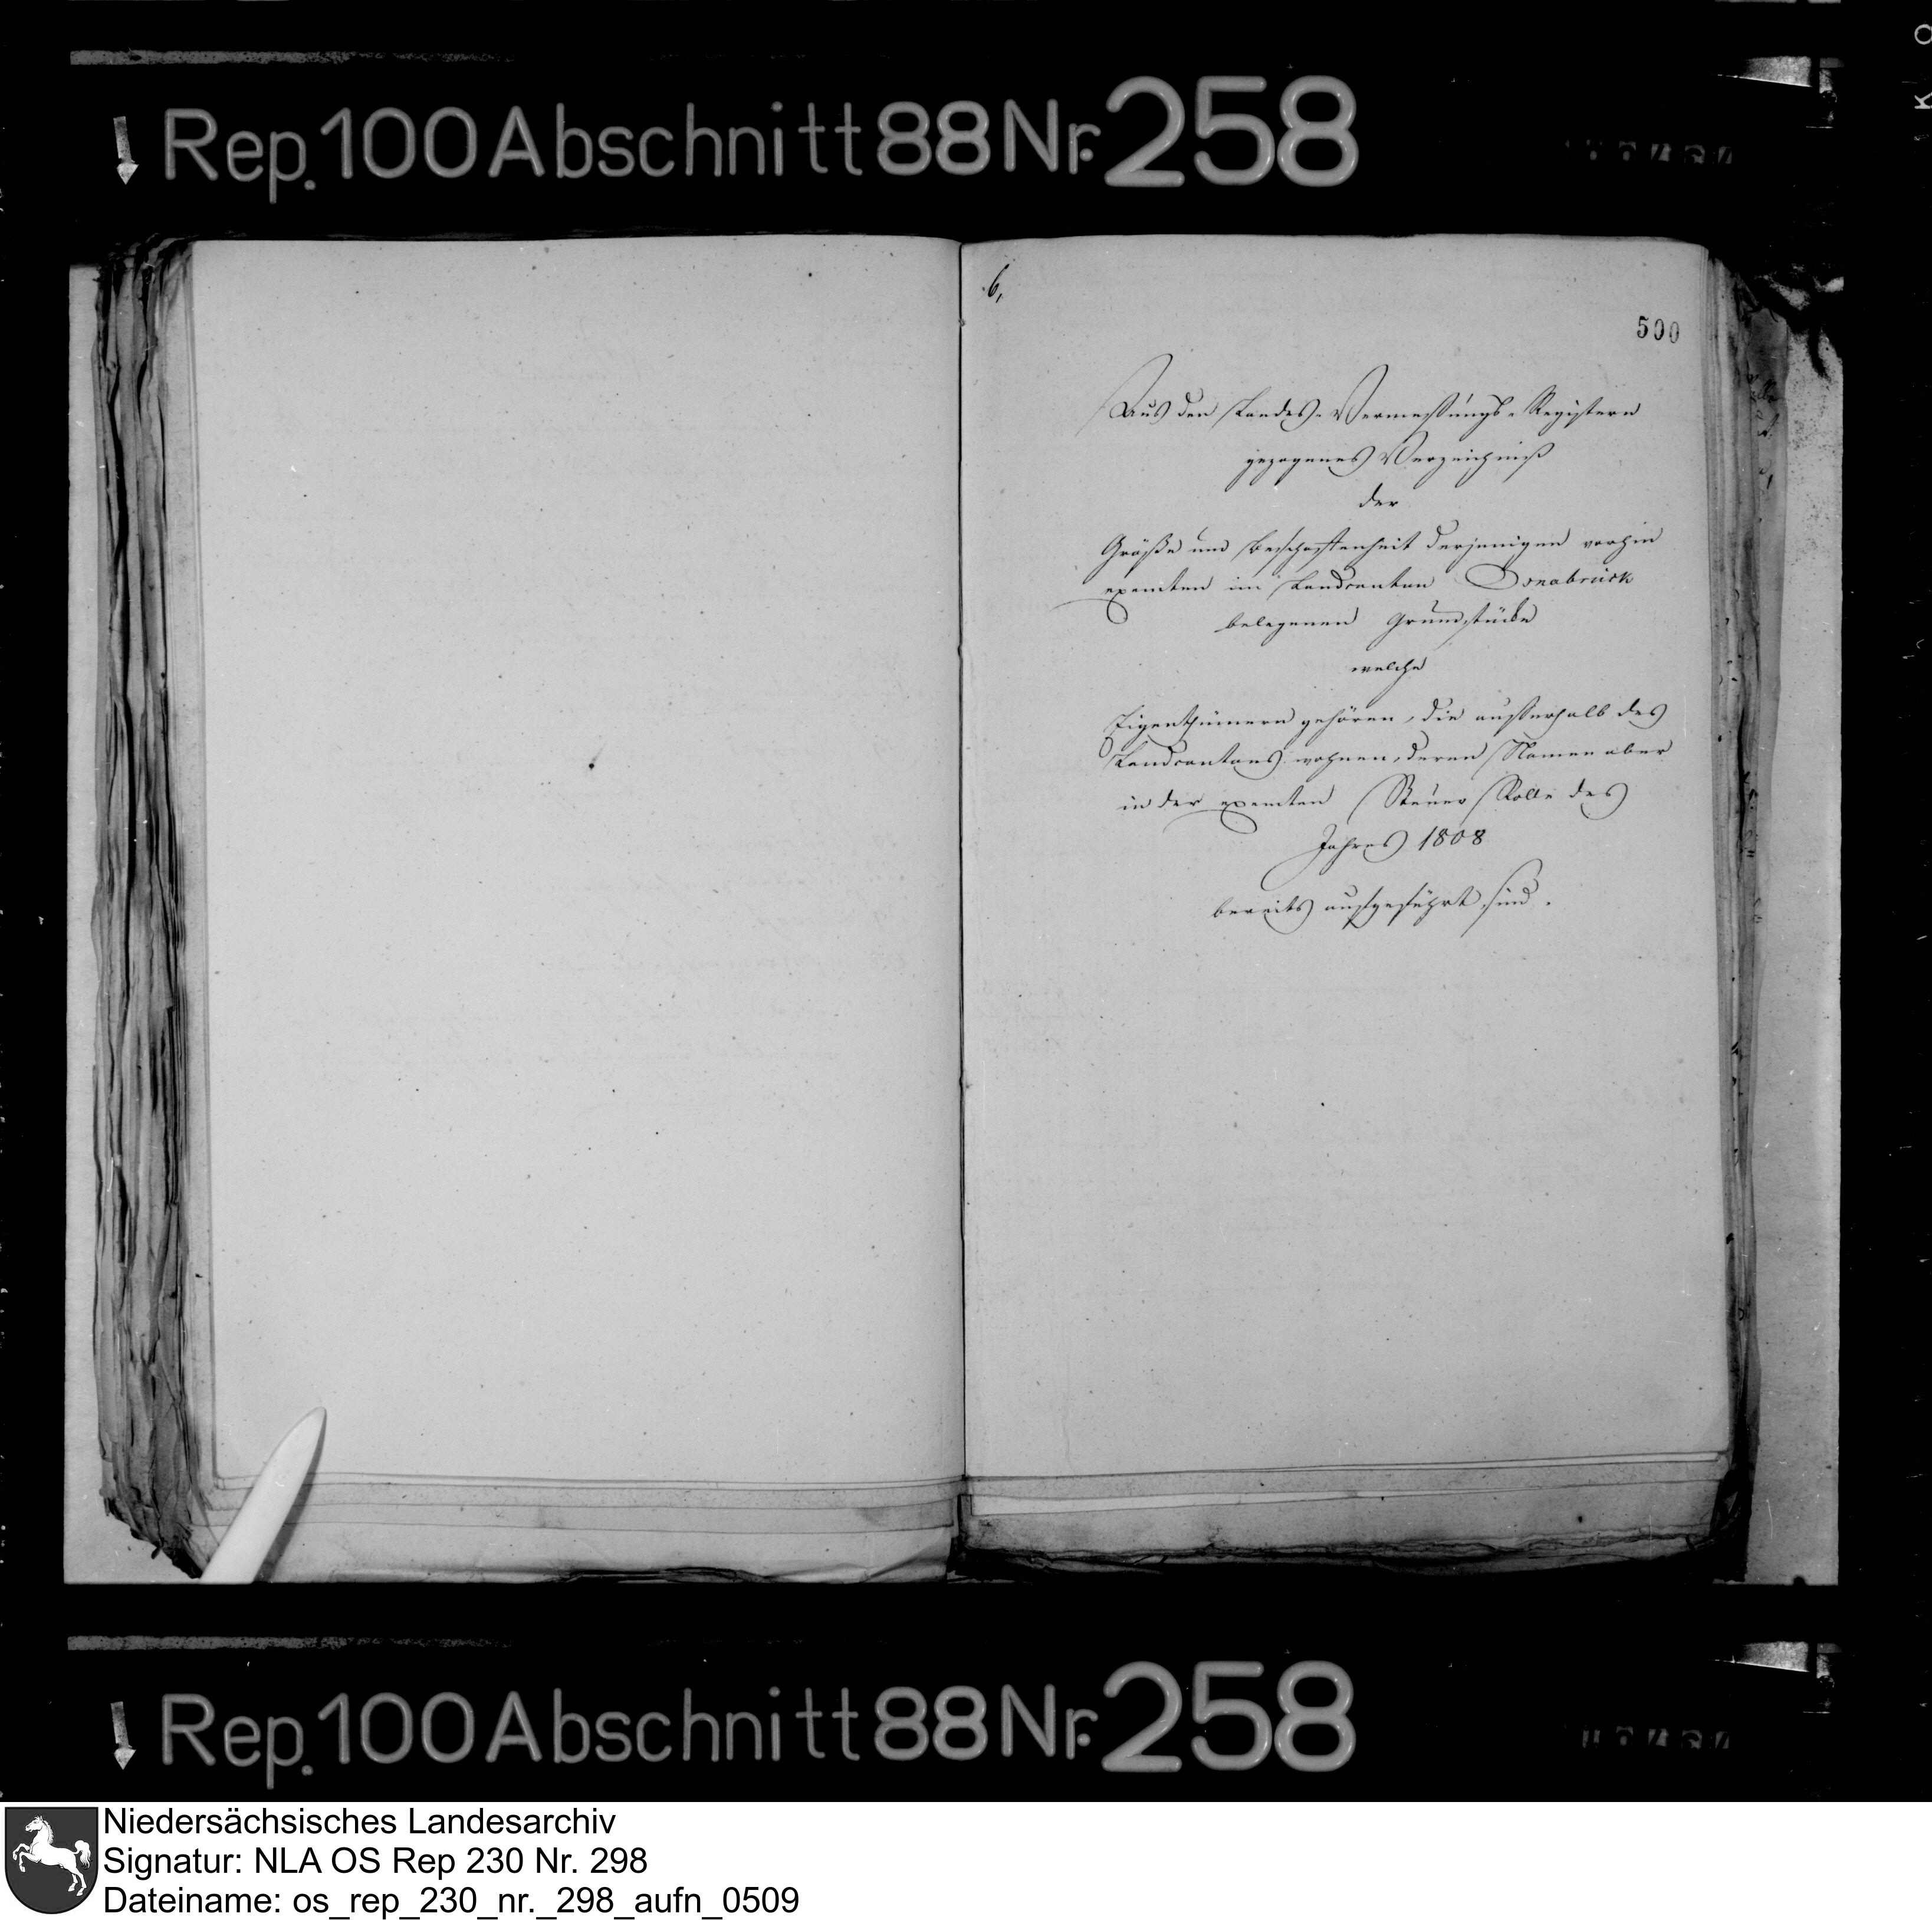 Rep. 100 Abschnitt 88 Nr. 258
6,
500
Aus den Landes-Vermessungs-Registern
gezogenes Verzeichniß
der
Größe und Beschaffenheit derjenigen vorhin
exemten im Landcanton Osnabrück
belegenen Grundstücke
welche
Eigenthümern gehören, die ausserhalb des
Landcantons wohnen, deren Namen aber
in der exemten Steuer Rolle des
Jahres 1808
bereits aufgeführt sind.
Rep. 100 Abschnitt 88 Nr. 258
Niedersächsisches Landesarchiv
Signatur: NLA OS Rep 230 Nr. 298
Dateiname: os_rep_230_nr._298_aufn_0509